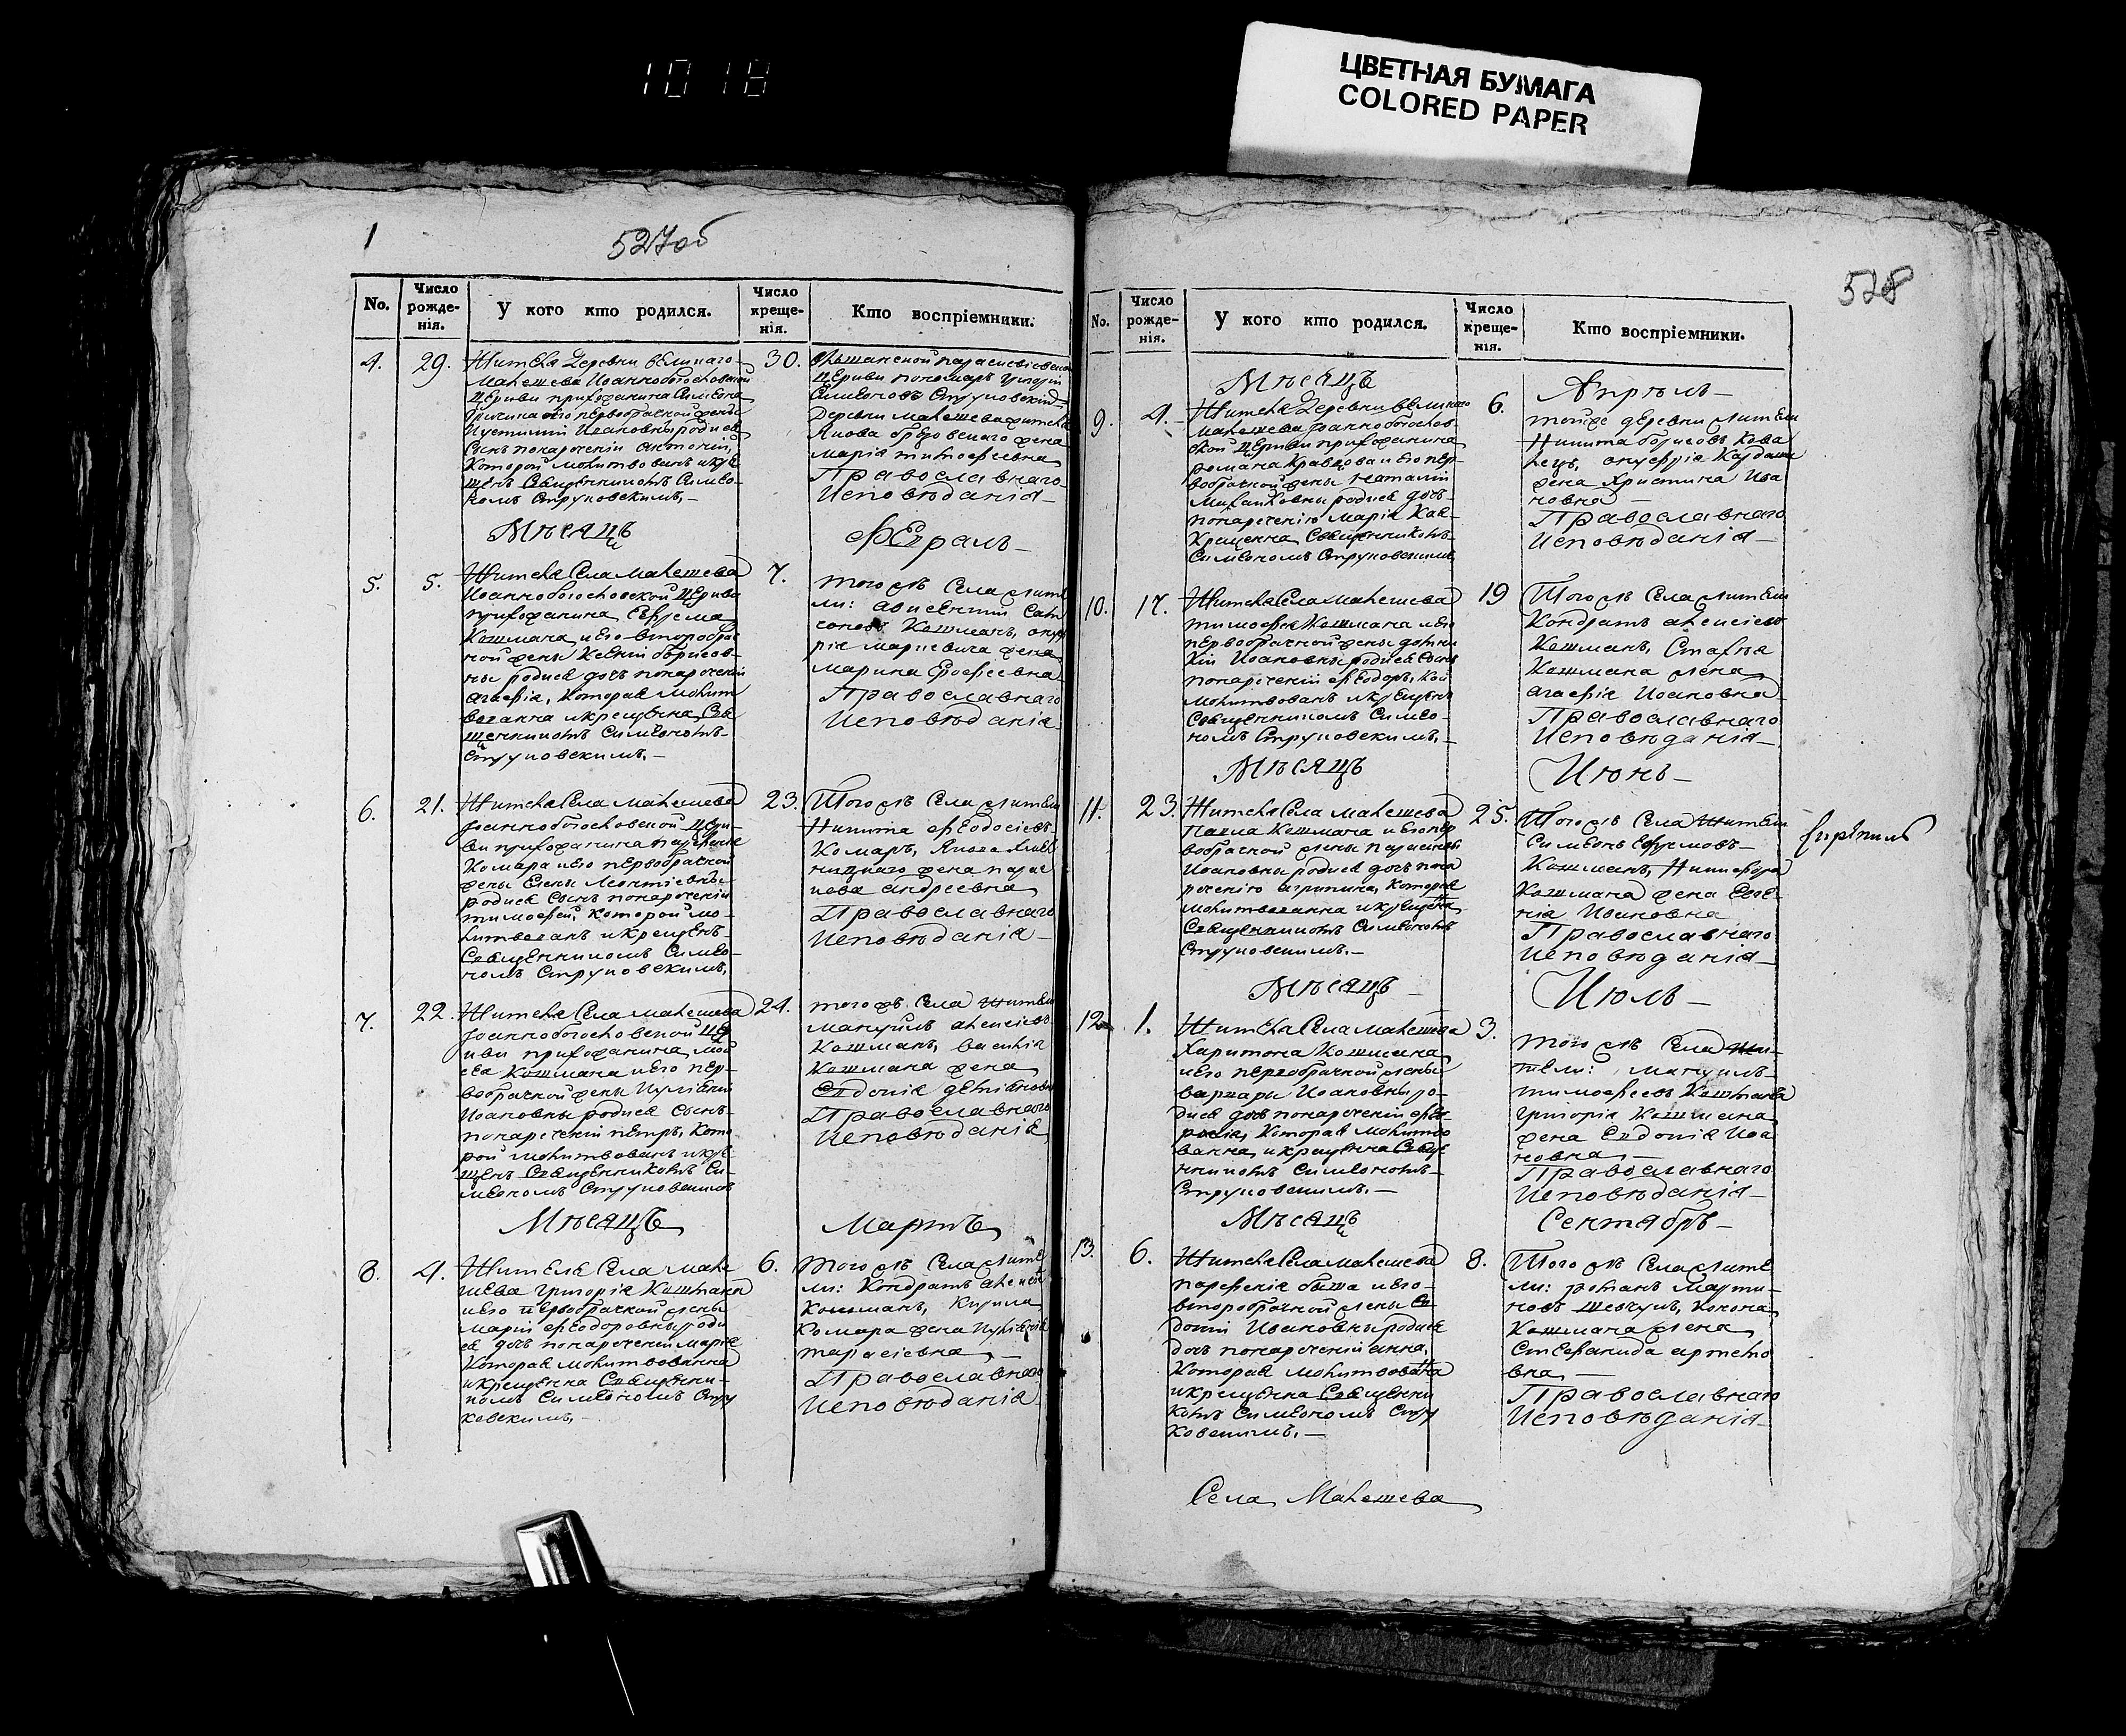 1018
ЦВЕТНАЯ БУМАГА
COLORED PAPER
1
527об
No.
Число рожде-нія.
У кого кто родился.
Число креще-нія.
Кто воспріемники.
4.
29.
Жителя Деревни великаго
Малешева Иоаннобогословской
Церкви прихожанина Симеона
его первобрачной жены
Иоановны родися
Сынъ понаречении Антоний,
Которой молитвованъ икре
щенъ Священникомъ Симео-
номъ Струковскимъ.
30.
Церкви пономаръ Григорій
Симеоновъ Струковскій
Деревни Малешева жителя
Якова жена
Марія Тимофеевна
Православнаго
Исповѣданія
Мѣсяцъ
Февраль
5.
5.
Жителя Села Малешева
Иоаннобогословской Церкви
прихожанина Ефрема
Кошмана, и его второбрач
ной жены Ксении борисов-
ны родися дочь понаречении
Агафія, Которая молит
вованна и крещенна Свя
щенникомъ Симеономъ
Струковскимъ.
7.
Того жъ Села жите
ли: Авксентий
Кошманъ,
жена
Марина Ерофеевна
Православнаго
Исповѣданія
6.
21.
Жителя Села Малешева
Иоаннобогословской Церк-
ви прихожанина
Комара и его первобрачной
жены Елены Леонтіевны
родися Сынъ понаречении
Тимофей, Которой мо-
литвованъ и крещенъ
Священникомъ Симео-
номъ Струковскимъ.
23.
Того жъ Села жители
Никита Феодосіевъ
Комаръ, Якова
жена Парас
кева Андреевна
Православнаго
Исповѣданія
7.
22.
Жителя Села Малешева
Иоаннобогословской Цер
кви прихожанина Мои
сея Кошмана и его пер-
вобрачной жены
Иоановны родися Сынъ
понаречении Петръ, Кото
рой молитвованъ и кре
щенъ Священникомъ Си-
меономъ Струковскимъ
24.
Того жъ Села жители
Мануилъ Алексіевъ
Кошманъ, Василія
Кошмана жена
Евдокія
Православнаго
Исповѣданія
Мѣсяцъ
Мартъ
8.
4.
Жителя Села Мале
шева Григорія Кошмана
и его первобрачной жены
Маріи Феодоровны роди
ся дочь понаречении Марія
Которая молитвованна
и крещенна Священни-
комъ Симеономъ Стру
ковскимъ.
6.
Того жъ Села жите
ли: Кондратъ Алексіевъ
Кошманъ, Кирила
Комара жена
Тарасіевна
Православнаго
Исповѣданія
528
No.
Число рожде-нія.
У кого кто родился.
Число креще-нія.
Кто воспріемники.
Мѣсяцъ
Апрѣль
9.
4.
Жителя Деревни великаго
Малешева Иоаннобогослов-
ской Церкви прихожанина
Романа Кравцова и его пер-
вобрачной жены Наталии
Михайловны родися дочь
понаречению Марія Коя
Крещенна Священникомъ
Симеономъ Струковскимъ
6.
тойже деревни жители
Никита борисовъ Кова
лецъ,
жена Христина Ива
новна
Православнаго
Исповѣданія
10.
17.
Жителя Села Малешева
Тимофея Кошмана и его
первобрачной жены
Иоановны родися Сынъ
понаречении Феодоръ, Кой
молитвованъ и крещенъ
Священникомъ Симео-
номъ Струковскимъ.
19
Того жъ Села жители
Кондратъ Алексіевъ
Кошманъ, Стахія
Кошмана жена
Агафія Иоановна
Православнаго
Исповѣданія
Мѣсяцъ
Июнь
11.
23.
Жителя Села Малешева
Павла Кошмана и его пер
вобрачной жены Параскевы
Иоановны родися дочь пона
речению Агрипина, Которая
молитвованна и крещенна
Священникомъ Симеономъ
Струковскимъ.
25.
Того жъ Села Жители
Симеонъ Ефремовъ
Кошманъ, Никифора
Кошмана жена Евге-
нія Ивановна
Православнаго
Исповѣданія
Мѣсяцъ
Июль
12
1.
Жителя Села Малешева
Харитона Кошмана
и его первобрачной жены
Варвары Иоановны ро-
дися дочь понаречении
Которая молитво
ванна, и крещенна Свяще
нникомъ Симеономъ
Струковскимъ.
3.
Того жъ Села Жи-
тели: Мануилъ
Тимофеевъ Кошмана
Григорія Кошмана
жена Евдокія Ива
новна
Православнаго
Исповѣданія
Мѣсяцъ
Сентябрь
13.
6.
Жителя Села Малешева
Парфенія и его
второбрачной жены Ев
докіи Ивановны родися
дочь понаречении Анна,
Которая молитвованна
и крещенна Священни
комъ Симеономъ Стру
ковскимъ.
8.
Того жъ Села жите
ли: Романъ Марти-
новъ Шевчукъ, Конона
Кошмана жена
Стефанида Артемо
вна
Православнаго
Исповѣданія
Села Малешева